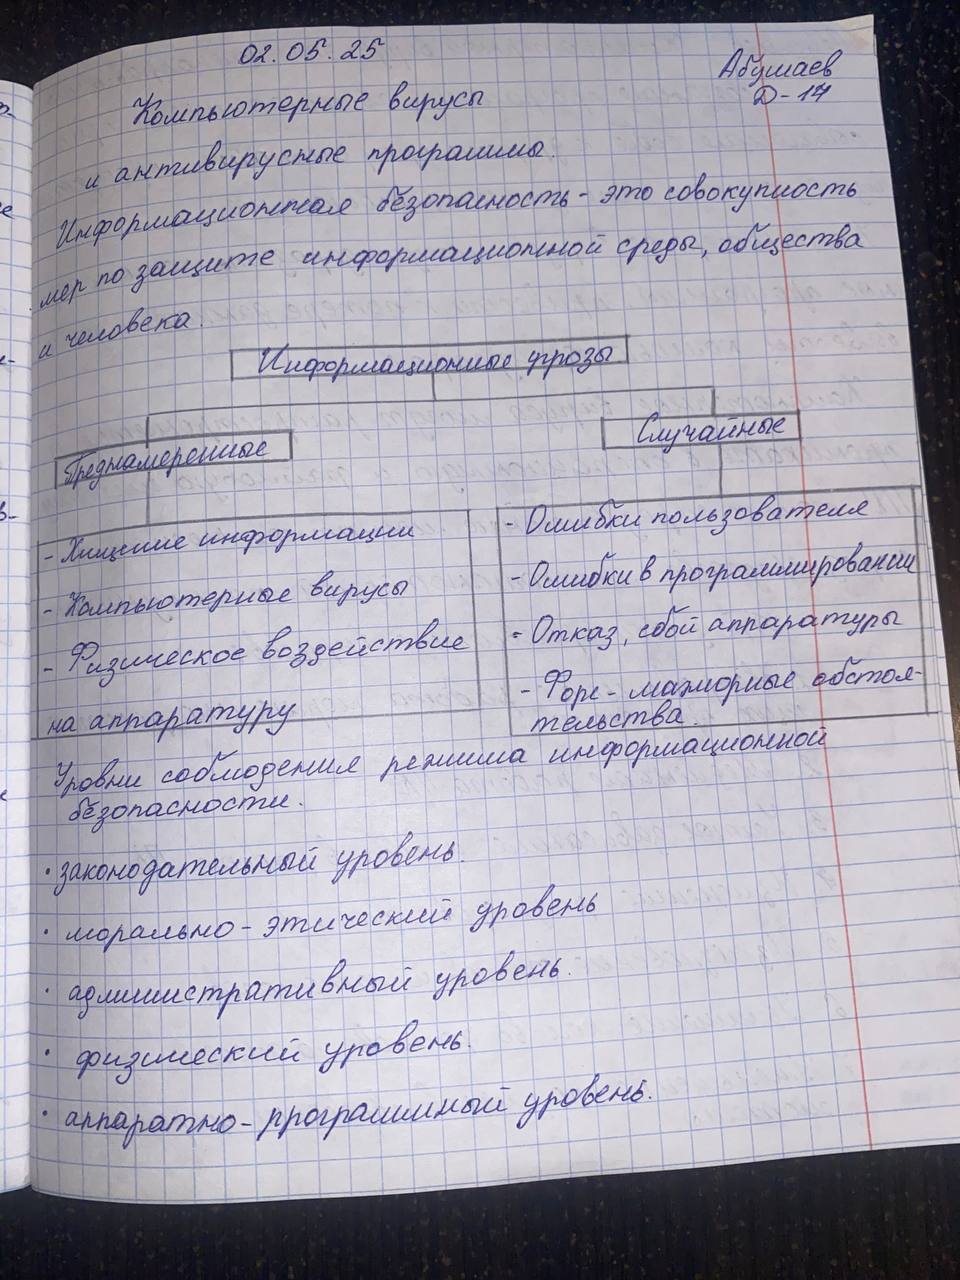 02.05.25
Абушаев
Д-17
Компьютерные вирусы
и антивирусные программы.
Информационная безопасность - это совокупность
мер по защите информационной среды, общества
и человека.
Информационные угрозы
Преднамеренные
Случайные
- Хищение информации
- Компьютерные вирусы
- Физическое воздействие
на аппаратуру
- Ошибки пользователя
- Ошибки в программировании
- Отказ, сбой аппаратуры
- Форс-мажорные обстоя-
тельства.
Уровни соблюдения режима информационной
безопасности.
· законодательный уровень.
· морально-этический уровень
· административный уровень.
· физический уровень.
· аппаратно-программный уровень.